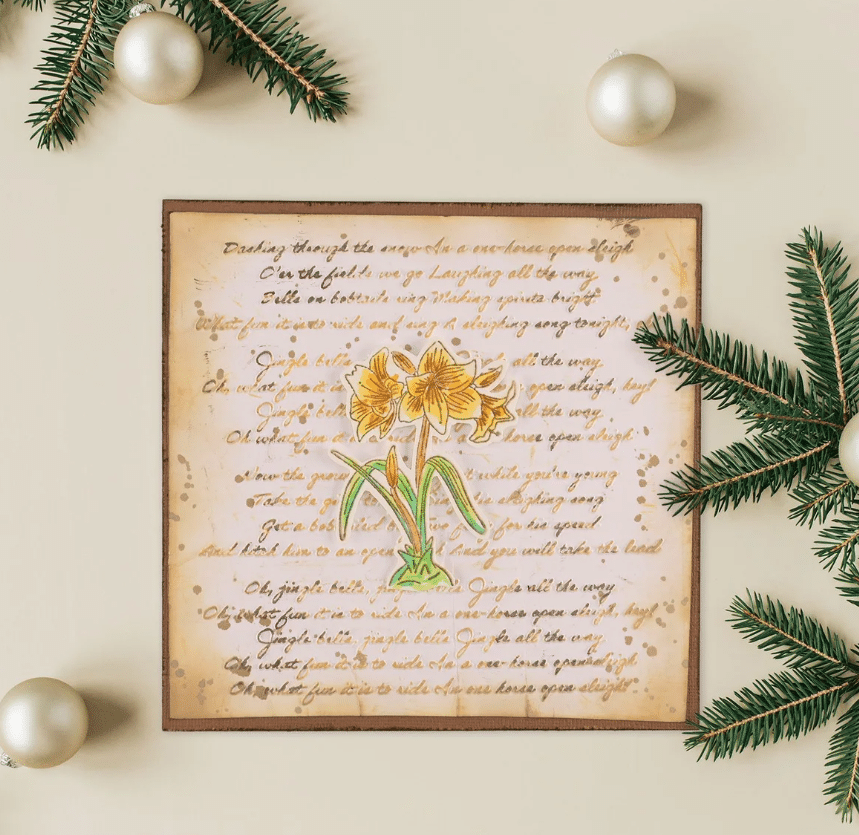 Dashing through the snow In a one-horse open sleigh
O'er the fields we go Laughing all the way
Bells on bobtails ring Making spirits bright
What fun it is to ride and sing A sleighing song tonight,
Jingle bells all the way
Oh, what fun it is open sleigh, hey!
Jingle bells all the way
Oh what fun it is a ride a horse open sleigh
Now the ground while you're young
Take the sleighing song
Get a bob for his speed
And hitch him to an open And you will take the lead
Oh, jingle bells, Jingle all the way
Oh, what fun it is to ride In a one-horse open sleigh, hey!
Jingle bells, jingle bells Jingle all the way
Oh, what fun it is to ride In a one-horse open sleigh
Oh, what fun it is to ride In a one horse open sleigh